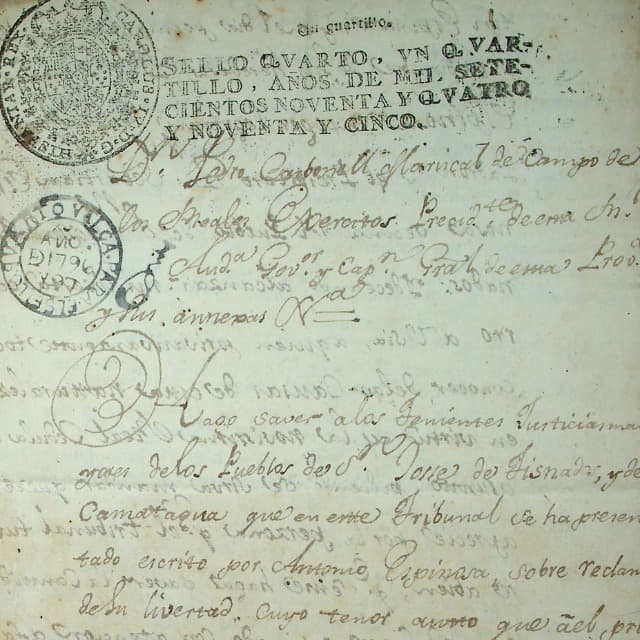 Un quartillo.
SELLO QVARTO, VN QVAR-
TILLO, AÑOS DE MIL SETE-
CIENTOS NOVENTA Y QVATRO
Y NOVENTA Y CINCO.
Dn. Pedro Carbonell Mariscal de Campo de
los Reales Exercitos Presidte. de esta Rl.
Auda. Govor. y Capn. Gral. de esta Prov.a
y sus annexas Na.
Hago saver a los Tenientes Justicias ma
yores de los Pueblos de Sn. Josse de Tisnados, y de
Camatagua que en este Tribunal se ha presen
tado escrito por Antonio Espinosa sobre reclam
de su livertad cuyo tenor que